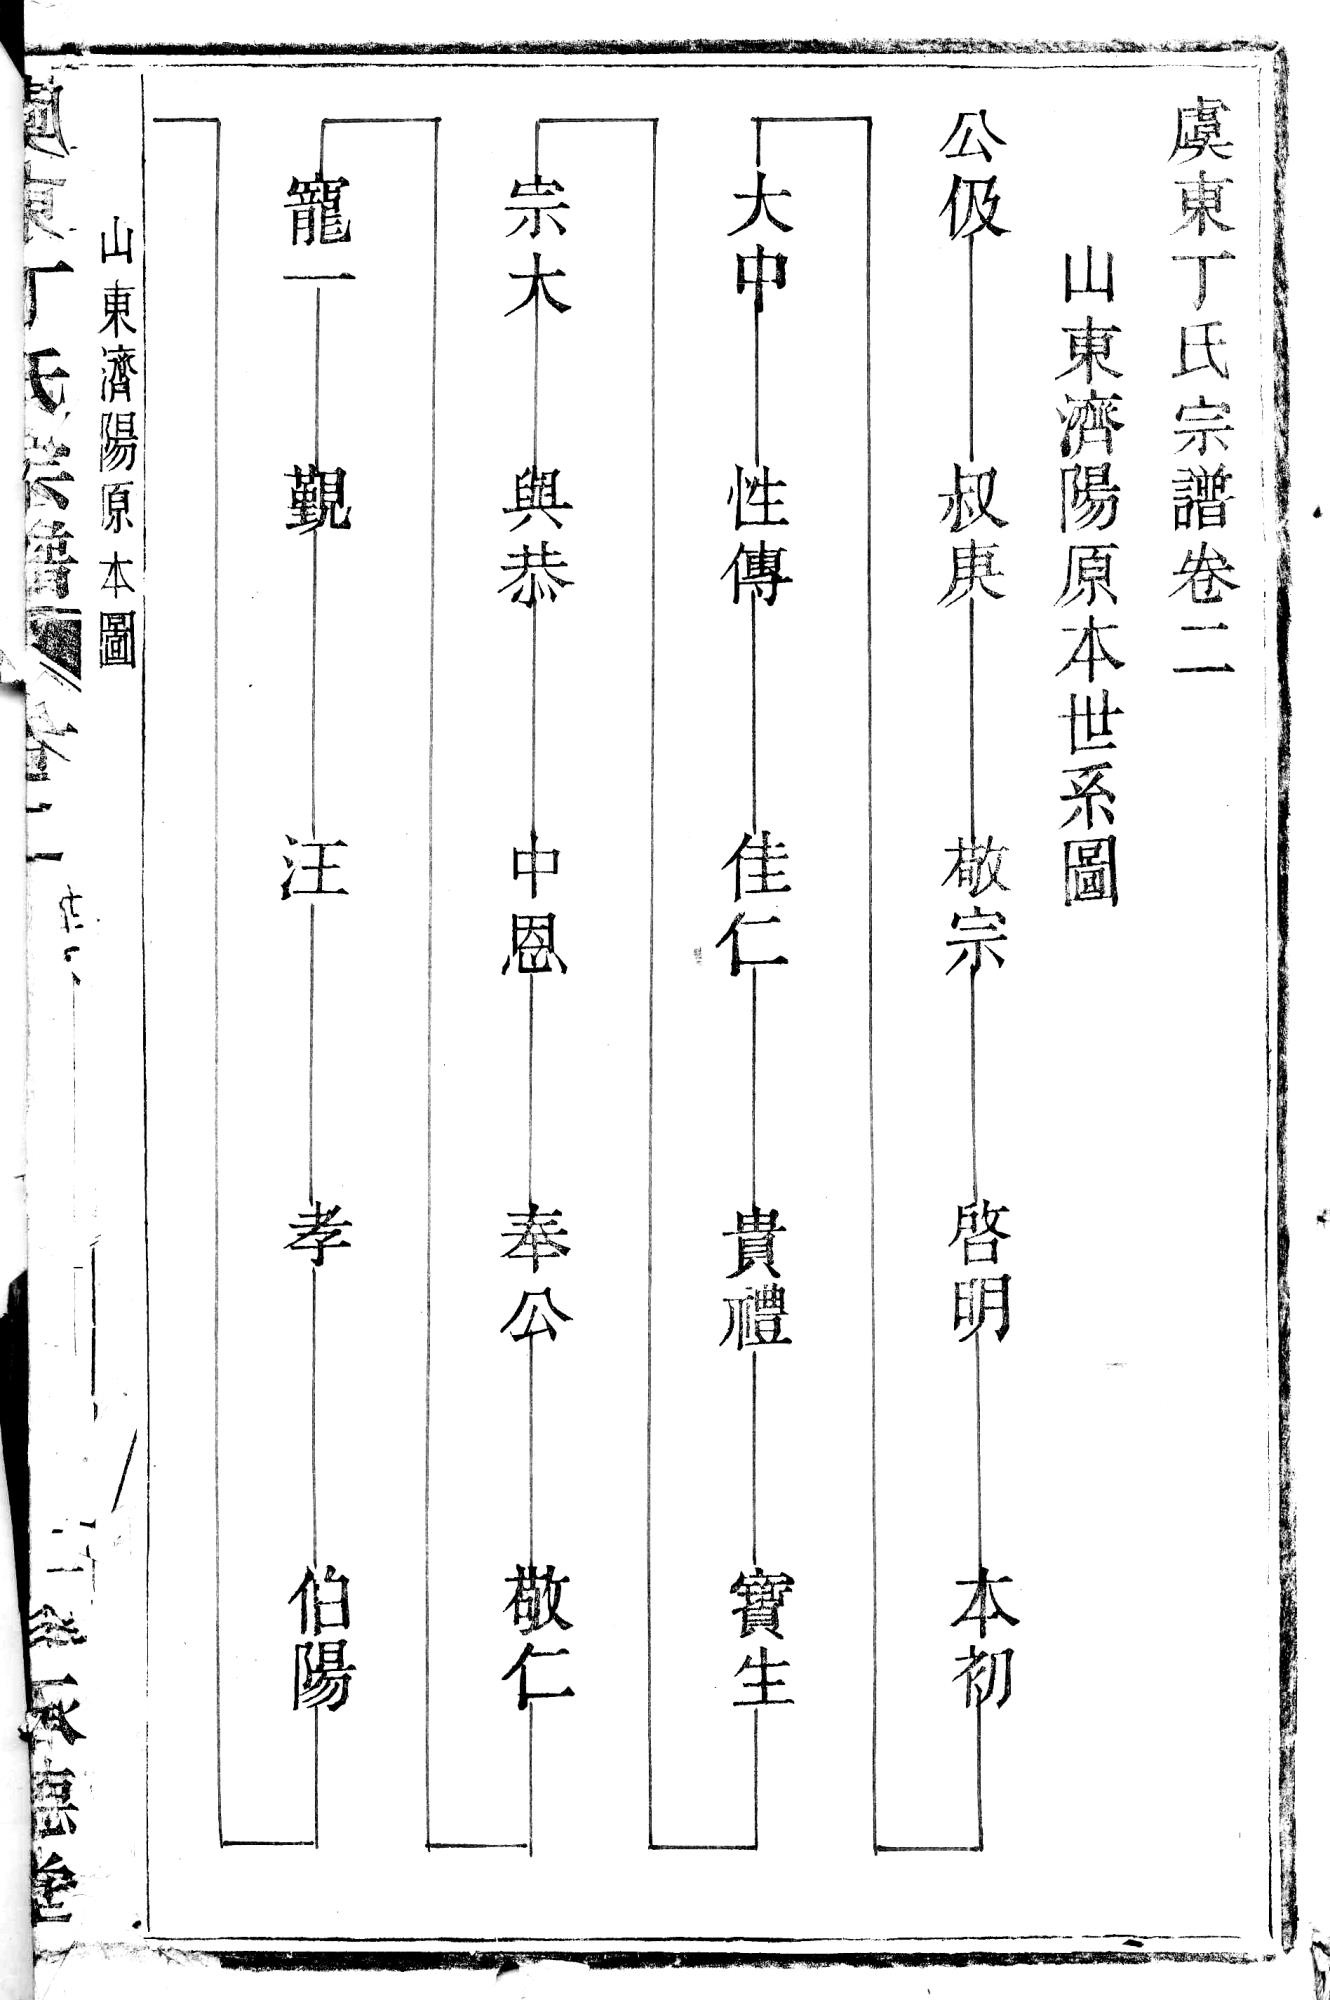 虞東丁氏宗譜卷二
山東濟陽原本世系圖
公伋 叔庚 敬宗 啓明 本初
大中 性傳 佳仁 貴禮 寶生
宗大 與恭 中恩 奉公 敬仁
寵一 觀 汪 孝 伯陽
山東濟陽原本圖
虞東丁氏宗譜 卷二 承德堂